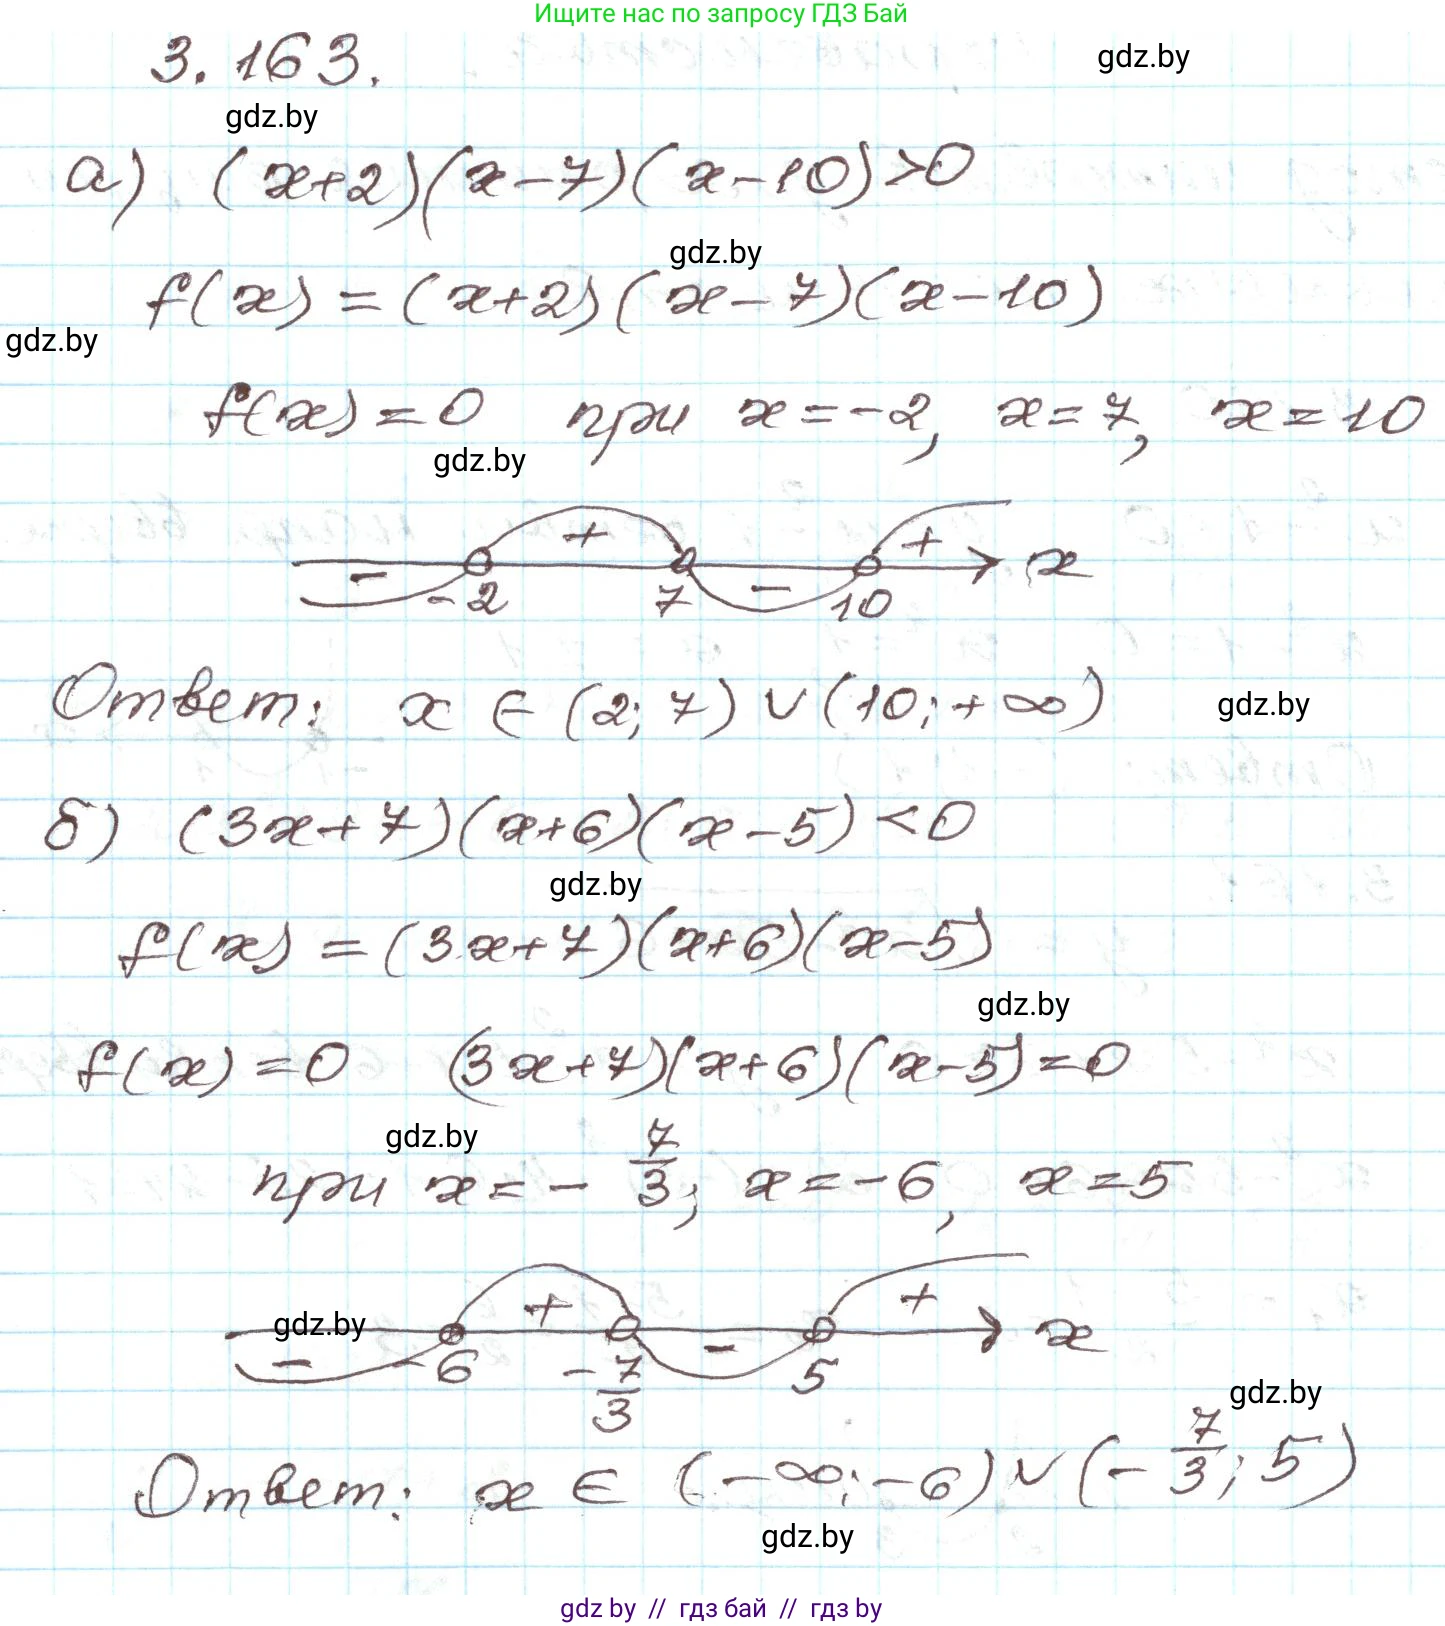 Ищите нас по запросу ГДЗ Бай
3.163.
gdz.by
gdz.by
а) (x+2)(x-7)(x-10)>0
gdz.by
f(x) = (x+2)(x-7)(x-10)
gdz.by
f(x)=0 при x=-2, x=7, x=10
gdz.by
- + - + x
-2 7 10
Ответ: x ∈ (2; 7) ∪ (10; +∞)
gdz.by
б) (3x+7)(x+6)(x-5) <0
gdz.by
f(x) = (3x+7)(x+6)(x-5)
gdz.by
f(x)=0 (3x+7)(x+6)(x-5)=0
gdz.by
при x=-7/3; x=-6, x=5
gdz.by
- + - + x
-6 -7/3 5
gdz.by
Ответ: x ∈ (-∞; -6) ∪ (-7/3; 5)
gdz.by
gdz by // гдз бай // гдз by